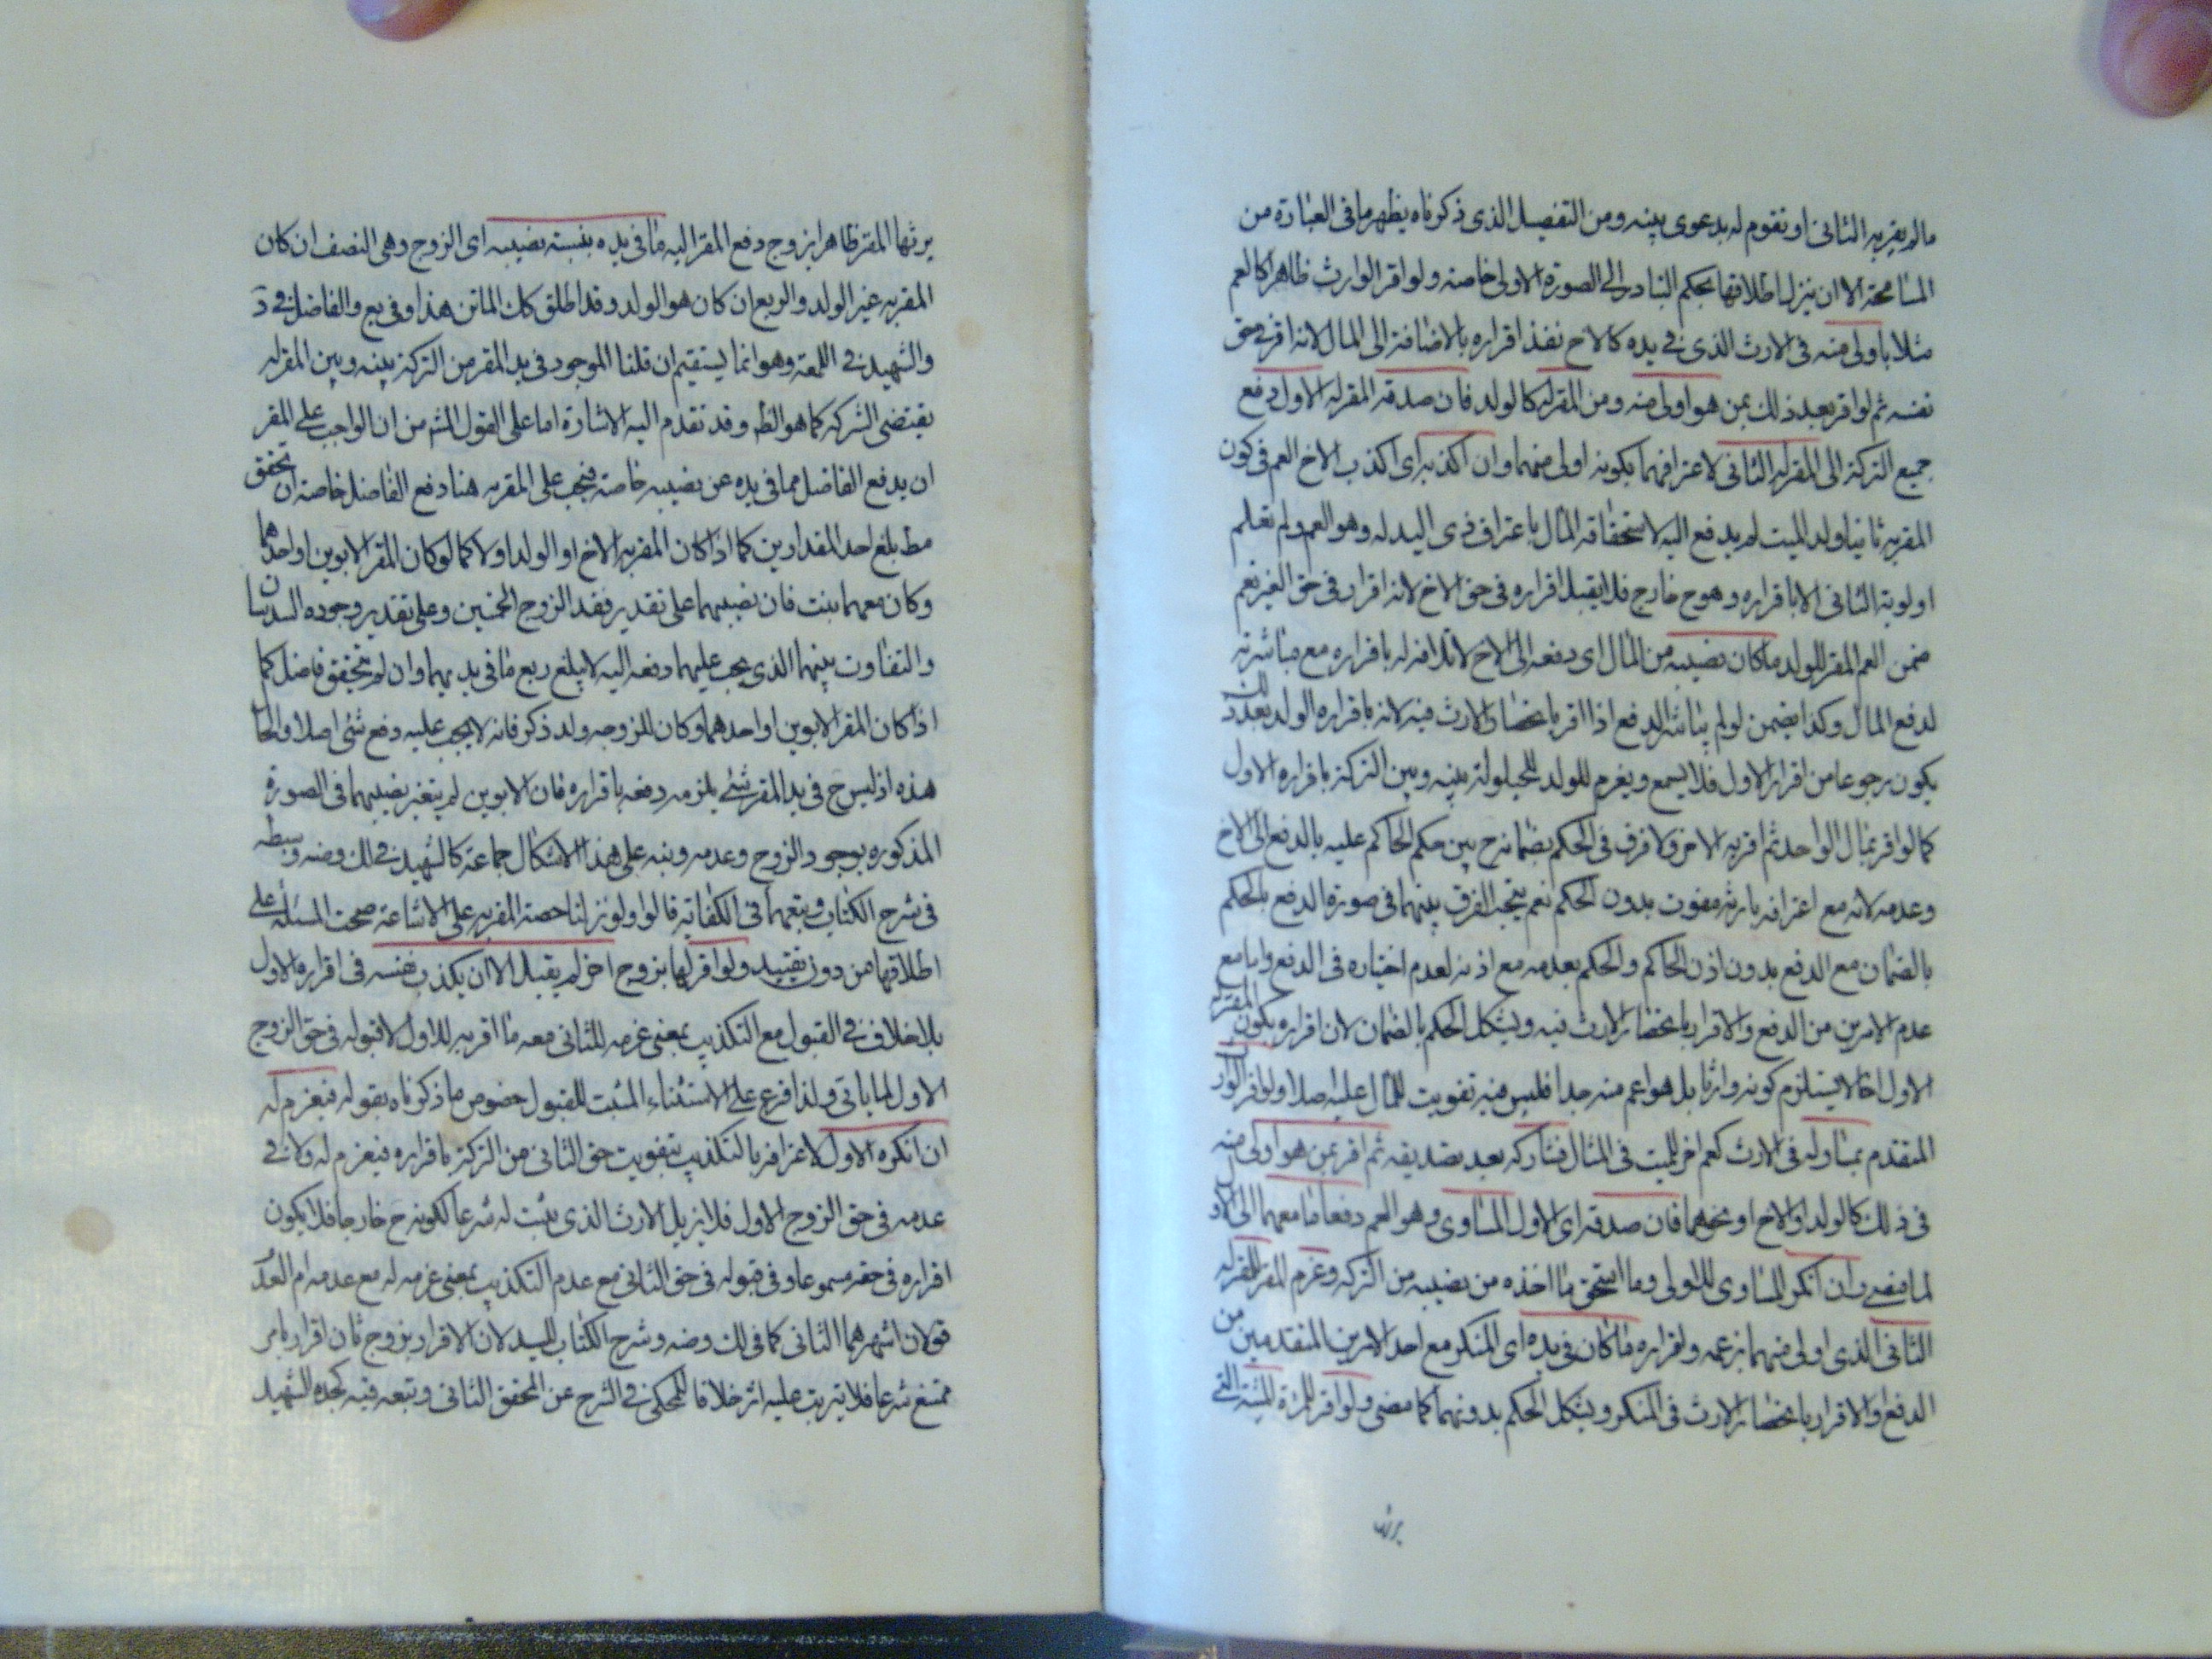 مالم يقر به الثانى او تقوم له بدعوى بينه ومن التفصيل الذى ذكرناه يظهر ما فى العبارة من
المسامحة الا ان ينزل اطلاقها بحكم التبادر الى الصورة الاولى خاصة ولو اقر الوارث ظاهرا كالعم
مثلا باولى منه فى الارث الذى فى يده كالاخ نفذ اقراره بالاضافة الى المال لانه اقر فى حق
نفسه ثم لو اقر بعد ذلك بمن هو اولى منه ومن المقر له كالولد فان صدقه المقر له الاول دفع
جميع التركة الى المقر له الثانى لاعترافهما بكونه اولى منهما وان اكذبه اى اكذب الاخ العم فى كون
المقر به ثانيا ولد الميت لم يدفع اليه لاستحقاقه المال باعتراف ذى اليد له وهو العم ولم تعلم
اولوية الثانى الا باقراره وهو ح خارج فلا يقبل اقراره فى حق الاخ لانه اقرار فى حق الغير نعم
ضمن العم المقر للولد ما كان نصيبه من المال اى دفعه الى الاخ لاتلافه له باقراره مع مباشرته
لدفع المال وكذا يضمن لو لم يباشر الدفع اذا اقر بانحصار الارث فيه لانه باقراره الولد بعد ذلك
يكون رجوعا من اقرار الاول فلا يسمع ويغرم للولد للحيلولة بينه وبين التركة باقراره الاول
كما لو اقر بمال الواحد ثم اقر به الاخر ولا فرق فى الحكم بضمانه ح بين حكم الحاكم عليه بالدفع الى الاخ
وعدمه لانه مع اعترافه بارثه مفوت بدون الحكم نعم يتجه الفرق بينهما فى صورة الدفع بالحكم
بالضمان مع الدفع بدون اذن الحاكم والحكم بعدمه مع اذنه لعدم اختياره فى الدفع واما مع
عدم الامرين من الدفع والاقرار بانحصار الارث فيه ويشكل الحكم بالضمان لان اقراره بكون المقر له
الاول اخا لا يستلزم كونه وارثا بل هو اعم منه جدا فليس فيه تفويت للمال عليه اصلا ولو اقر الوارث
المتقدم بمساو له فى الارث كعم اخر للميت فى المثال فشاركه بعد تصديقه ثم اقر بمن هو اولى منه
فى ذلك كالولد او الاخ او نحوهما فان صدقه اى الاول المساوى وهو العم دفعا ما معهما الى الاولى
لما مضى وان انكر المساوى للاولى وما استحق ما اخذه من نصيبه من التركه وغرم المقر للمقر له
الثانى الذى اولى منهما بزعمه واقراره ما كان فى يده اى المنكر مع احد الامرين المتقدمين من
الدفع او الاقرار بانحصار الارث فى المنكر ويشكل الحكم بدونهما كما مضى ولو اقر للمرأة الميتة التى
يرثها
يرثها المقر ظاهرا بزوج دفع المقر اليه ما فى يده بنسبة نصيبه اى الزوج وهى النصف ان كان
المقر به غير الولد والربع ان كان هو الولد وقد اطلق كك الماتن هذا وفى يع والفاضل فى د
والشهيد فى اللمعة وهو انما يستقيم ان قلنا الموجود فى يد المقر من التركة بينه وبين المقر له
يقتضى الشركه كما هو الظ وقد تقدم اليه الاشارة اما على القول المش من ان الواجب على المقر
ان يدفع الفاضل مما فى يده عن نصيبه خاصة فيجب على المقر به هنا دفع الفاضل خاصة ان تحقق
مط بلغ احد المقدارين كما اذا كان المقر به الاخ او الولد اولا كما لو كان المقر الابوين او احدهما
وكان معهما بنت فان نصيبهما على تقدير فقد الزوج الخمسين وعلى تقدير وجوده السدسان
والتفاوت بينهما الذى يجب عليهما دفعه اليه لا يبلغ ربع ما فى يديهما وان لم يتحقق فاضل كما
اذا كان المقر الابوين او احدهما وكان للزوجه ولد ذكر فانه لا يجب عليه دفع شئ اصلا والحال
هذه اذ ليس ح فى يد المقر شئ يلزمه دفعه باقراره فان الابوين لم يتغير نصيبهما فى الصورة
المذكوره بوجود الزوج وعدمه ونبه على هذا الاشكال جماعة كالشهيد فى لك وضه وسبطه
فى شرح الكتاب وتبعهما فى الكفاية قالوا ولو نزلنا حصة المقر به على الاشاعة صحت المسئلة على
اطلاقها من دون تقييد ولو اقر لها بزوج اخر لم يقبل الا ان يكذب نفسه فى اقراره الاول
بلا خلاف فى القبول مع التكذيب بمعنى غرمه للثانى معه ما اقر به للاول لا قبوله فى حق الزوج
الاول لما ياتى ولذا فرع على الاستثناء المثبت للقبول خصوص ما ذكرناه بقوله فيغرم له
ان انكره الاول لاعترافه بالتكذيب بتفويت حق الثانى من التركة باقراره فيغرم له ولا فى
عدمه فى حق الزوج الاول فلا يزيل الارث الذى يثبت له شرعا لكونه ح خارجا فلا يكون
اقراره فى حقه مسموعا وفى قبوله فى حق الثانى مع عدم التكذيب بمعنى غرمه له مع عدمه ام العدم
قولان اشهرهما الثانى كما فى لك وضه وشرح الكتاب للسيد لان الاقرار بزوج ثان اقرار بامر
ممتنع شرعا فلا يترتب عليه اثر خلافا للمحكى فى الشرح عن المحقق الثانى وتبعه فيه كجده الشهيد